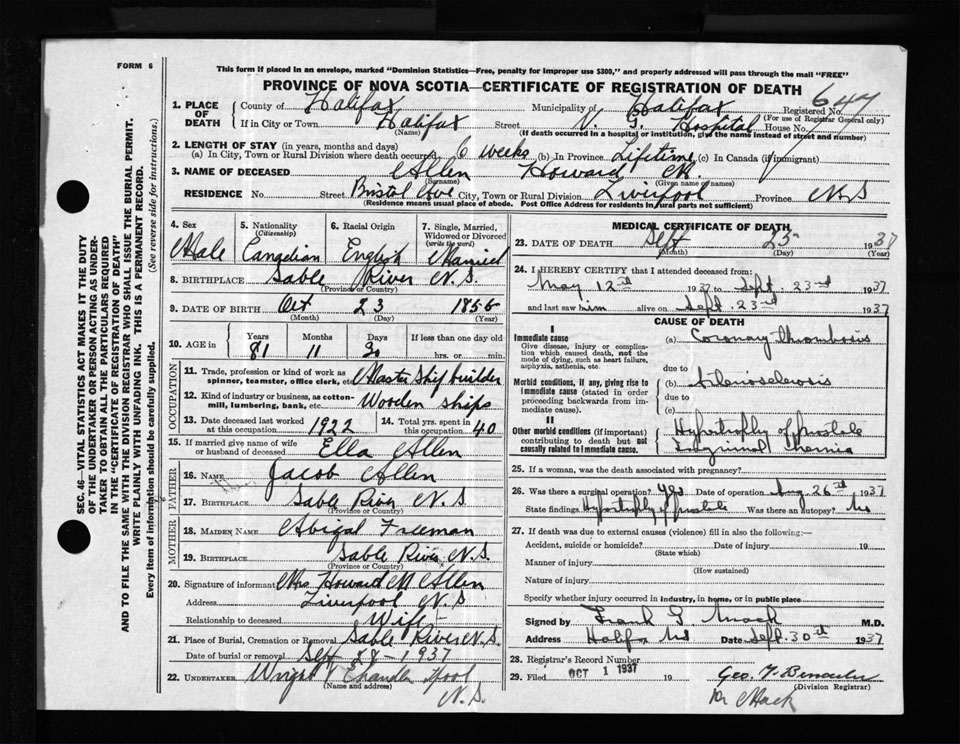 FORM 6
This form if placed in an envelope, marked "Dominion Statistics—Free, penalty for improper use $300," and properly addressed will pass through the mail "FREE"
PROVINCE OF NOVA SCOTIA—CERTIFICATE OF REGISTRATION OF DEATH
1. PLACE OF DEATH County of Halifax Municipality of Halifax Registered No. 647
(For use of Registrar General only)
If in City or Town Halifax Street V. G. Hospital House No.
(Name) (If death occurred in a hospital or institution, give the name instead of street and number)
2. LENGTH OF STAY (in years, months and days)
(a) In City, Town or Rural Division where death occurred 6 weeks (b) In Province Lifetime (c) In Canada (if immigrant)
3. NAME OF DECEASED Allen Howard M.
(Surname) (Given name or names)
RESIDENCE No. Street Bristol Ave City, Town or Rural Division Liverpool Province N.S
(Residence means usual place of abode. Post Office Address for residents in rural parts not sufficient)
4. Sex 5. Nationality (Citizenship) 6. Racial Origin 7. Single, Married, Widowed or Divorced (write the word)
Male Canadian English Married
8. BIRTHPLACE Sable River N.S.
(Province or Country)
9. DATE OF BIRTH Oct 23 1855
(Month) (Day) (Year)
10. AGE in Years Months Days If less than one day old
81 11 hrs. or min.
OCCUPATION
11. Trade, profession or kind of work as spinner, teamster, office clerk, etc. Master Ship builder
12. Kind of industry or business, as cotton-mill, lumbering, bank, etc. Wooden ships
13. Date deceased last worked at this occupation 1922 14. Total yrs. spent in this occupation 40
15. If married give name of wife or husband of deceased Ella Allen
FATHER
16. NAME Jacob Allen
17. BIRTHPLACE Sable River N.S
(Province or Country)
MOTHER
18. MAIDEN NAME Abigal Freeman
19. BIRTHPLACE Sable River N.S.
(Province or Country)
20. Signature of informant Mrs Howard M Allen
Address Liverpool N.S
Relationship to deceased Wife
21. Place of Burial, Cremation or Removal Sable River N.S.
Date of burial or removal Sept 28 - 1937
22. UNDERTAKER Wright Chandler Lpool
(Name and address) N.S.
MEDICAL CERTIFICATE OF DEATH
23. DATE OF DEATH Sept 25th 1937
(Month) (Day) (Year)
24. I HEREBY CERTIFY that I attended deceased from:
May 12th 1937 to Sept. 23rd 1937
and last saw him alive on Sept. 23rd 1937
CAUSE OF DEATH
I
Immediate cause (a) Coronary thrombosis
Give disease, injury or complication which caused death, not the mode of dying, such as heart failure, asphyxia, asthenia, etc.
due to
Morbid conditions, if any, giving rise to immediate cause (stated in order proceeding backwards from immediate cause).
(b) Arteriosclerosis
due to
(c)
II
Other morbid conditions (if important) contributing to death but not causally related to immediate cause.
Hypertrophy of prostate
Inguinal Hernia
25. If a woman, was the death associated with pregnancy?
26. Was there a surgical operation? yes Date of operation Aug. 26th 1937
State findings Hypertrophy of prostate Was there an autopsy? No
27. If death was due to external causes (violence) fill in also the following:—
Accident, suicide or homicide? Date of injury 19
(State which)
Manner of injury
(How sustained)
Nature of injury
Specify whether injury occurred in industry, in home, or in public place
Signed by Frank G Mack M.D.
Address Halifax NS Date Sept. 30th 1937
28. Registrar's Record Number
29. Filed OCT 1 1937 19 Geo.
(Division Registrar)
Dr Mack
SEC. 46—VITAL STATISTICS ACT MAKES IT THE DUTY
OF THE UNDERTAKER OR PERSON ACTING AS UNDER-
TAKER TO OBTAIN ALL THE PARTICULARS REQUIRED
IN THE "CERTIFICATE OF REGISTRATION OF DEATH"
AND TO FILE THE SAME WITH THE DIVISION REGISTRAR WHO SHALL ISSUE THE BURIAL PERMIT.
WRITE PLAINLY WITH UNFADING INK. THIS IS A PERMANENT RECORD.
Every item of information should be carefully supplied. (See reverse side for instructions.)